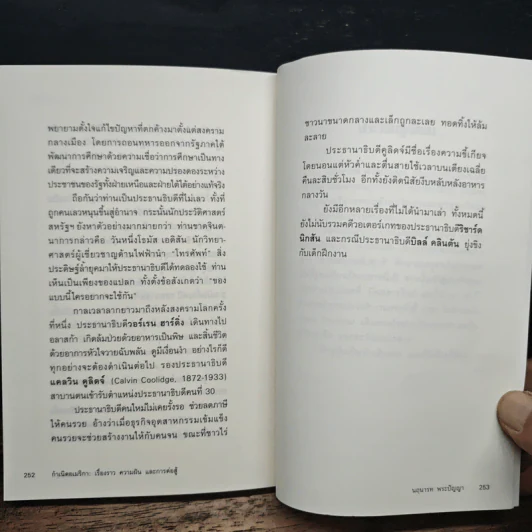 พยายามตั้งใจแก้ไขปัญหาที่ตกค้างมาตั้งแต่สงคราม
กลางเมือง โดยการถอนทหารออกจากรัฐภาคใต้
พัฒนาการศึกษาด้วยความเชื่อว่าการศึกษาเป็นทาง
เดียวที่จะสร้างความเจริญและความปรองดองระหว่าง
ประชาชนของรัฐทั้งฝ่ายเหนือและฝ่ายใต้ได้อย่างแท้จริง
ถือกันว่าท่านเป็นประธานาธิบดีที่ไม่เลว ทั้งที่
ถูกคนเลวหนุนขึ้นสู่อำนาจ กระนั้นนักประวัติศาสตร์
สหรัฐฯ ยังหาว่าท่านด้อยอย่างมากมายกว่า ท่านขาดจินต-
นาการกล่าวคือ วันหนึ่งโธมัส เอดิสัน นักวิทยา-
ศาสตร์ผู้เชี่ยวชาญด้านไฟฟ้านำ "โทรศัพท์" สิ่ง
ประดิษฐ์ล่ายุคมาให้ประธานาธิบดีได้ทดลองใช้ ท่าน
เห็นเป็นเพียงของแปลก ทั้งตั้งข้อสังเกตว่า "ของ
แบบนี้ใครอยากจะใช้กัน"
กาลเวลาลากยาวมาถึงหลังสงครามโลกครั้ง
ที่หนึ่ง ประธานาธิบดีวอร์เรน ฮาร์ดิ่ง เดินทางไป
อลาสก้า เกิดล้มป่วยด้วยอาหารเป็นพิษ และสิ้นชีวิต
ด้วยอาการหัวใจวายฉับพลัน ดูมีเงื่อนงำ อย่างไรก็ดี
ทุกอย่างจะต้องดำเนินต่อไป รองประธานาธิบดี
แคลวิน คูลิดจ์ (Calvin Coolidge, 1872-1933)
สาบานตนเข้ารับตำแหน่งประธานาธิบดีคนที่ 30
ประธานาธิบดีคนใหม่ไม่เคยรั้งรอ ช่วยลดภาษี
ให้คนรวย อ้างว่าเมื่อธุรกิจอุตสาหกรรมเข้มแข็ง
คนรวยจะช่วยสร้างงานให้กับคนจน ขณะที่ชาวไร่
252 กำเนิดอเมริกา: เรื่องราว ความฝัน และการต่อสู้
ชาวนาขนาดกลางและเล็กถูกละเลย ทอดทิ้งให้ล้ม
ละลาย
ประธานาธิบดีคูลิดจ์มีชื่อเรื่องความขี้เกียจ
โดยนอนแต่หัวค่ำและตื่นสายใช้เวลาบนเตียงเฉลี่ย
คืนละสิบชั่วโมง อีกทั้งยังติดนิสัยงีบหลับหลังอาหาร
กลางวัน
ยังมีอีกหลายเรื่องที่ไม่ได้นำมาเล่า ทั้งหมดนี้
ยังไม่นับรวมคดีวอเตอร์เกทของประธานาธิบดีริชาร์ด
นิกสัน และกรณีประธานาธิบดีบิลล์ คลินตัน ยุ่งขิง
กับเด็กฝึกงาน
นฤนารท พระปัญญา 253